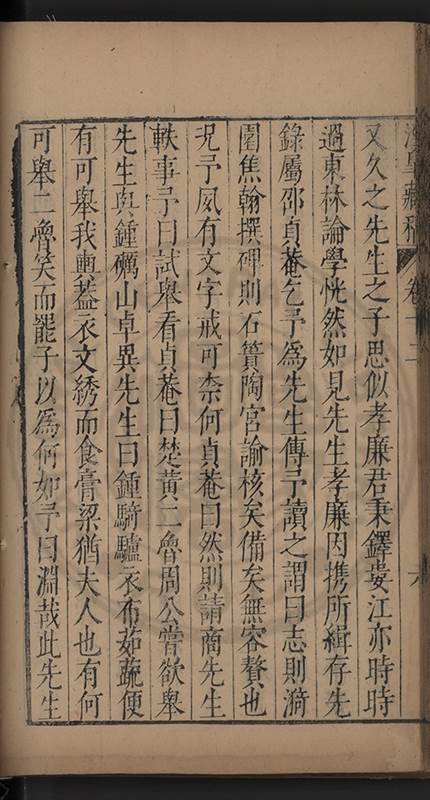 卷十二
又久之先生之子思似孝廉君秉鐸婁江亦時時
過東林論學恍然如見先生孝廉因攜所緝存先
錄屬邵貞菴乞予爲先生傳予讀之謂曰志則漪
園焦翰撰碑則石簣陶宮諭核矣備矣無容贅也
况予夙有文字戒可柰何貞菴曰然則請商先生
軼事予曰試舉看貞菴曰楚黃二魯周公嘗欲舉
先生與鍾礪山卓異先生曰鍾騎驢衣布茹蔬便
有可舉我輿蓋衣文綉而食膏粱猶夫人也有何
可舉二魯笑而罷子以爲何如予曰淵哉此先生